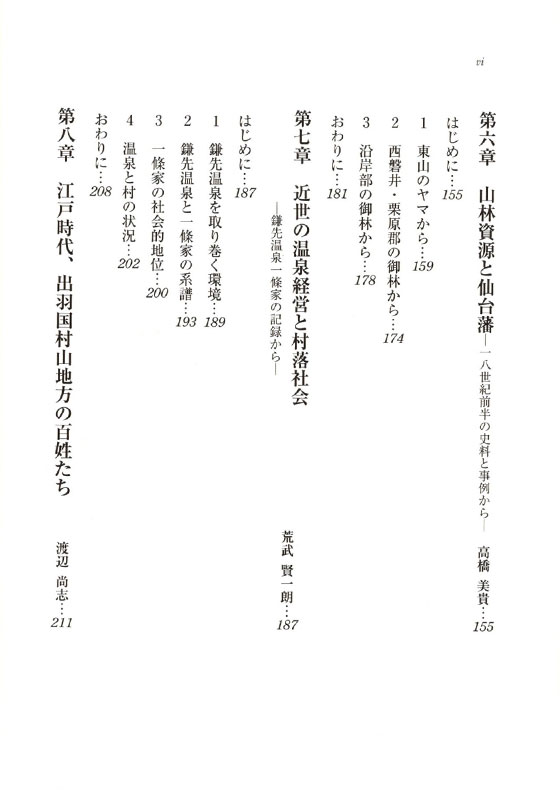 vi
第六章　山林資源と仙台藩―一八世紀前半の史料と事例から―　高橋 美貴…155
はじめに…155
1　東山のヤマから…159
2　西磐井・栗原郡の御林から…174
3　沿岸部の御林から…178
おわりに…181
第七章　近世の温泉経営と村落社会
―鎌先温泉一條家の記録から―　荒武 賢一朗…187
はじめに…187
1　鎌先温泉を取り巻く環境…189
2　鎌先温泉と一條家の系譜…193
3　一條家の社会的地位…200
4　温泉と村の状況…202
おわりに…208
第八章　江戸時代、出羽国村山地方の百姓たち　渡辺 尚志…211